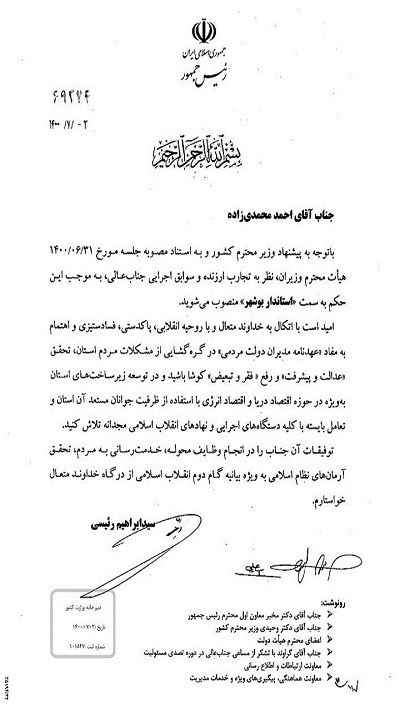 جمهوری اسلامی ایران
رئیس جمهور
۶۹۲۷۴
۱۴۰۰/۷/۰۲
بسم الله الرحمن الرحیم
جناب آقای احمد محمدی‌زاده
باتوجه به پیشنهاد وزیر محترم کشور و به استناد مصوبه جلسه مورخ ۱۴۰۰/۰۶/۳۱
هیأت محترم وزیران، نظر به تجارب ارزنده و سوابق اجرایی جناب‌عالی، به موجب این
حکم به سمت «استاندار بوشهر» منصوب می‌شوید.
امید است با اتکال به خداوند متعال و با روحیه انقلابی، پاکدستی، فسادستیزی و اهتمام
به مفاد «عهدنامه مدیران دولت مردمی» در گره‌گشایی از مشکلات مردم استان، تحقق
«عدالت و پیشرفت» و رفع « فقر و تبعیض» کوشا باشید و در توسعه زیرساخت‌های استان
به‌ویژه در حوزه اقتصاد دریا و اقتصاد انرژی با استفاده از ظرفیت جوانان مستعد آن استان و
تعامل بایسته با کلیه دستگاه‌های اجرایی و نهادهای انقلاب اسلامی مجدانه تلاش کنید.
توفیقات آن جناب را در انجام وظایف محوله، خدمت‌رسانی به مردم، تحقق
آرمان‌های نظام اسلامی به ویژه بیانیه گام دوم انقلاب اسلامی از درگاه خداوند متعال
خواستارم.
سیدابراهیم رئیسی
دبیرخانه وزارت کشور
تاریخ: ۱۴۰۰/۰۷/۰۲
شماره ثبت: ۱۰۱۸۴۷
رونوشت:
جناب آقای دکتر مخبر معاون اول محترم رئیس جمهور
جناب آقای دکتر وحیدی وزیر محترم کشور
اعضای محترم هیأت دولت
جناب آقای گراوند با تشکر از مساعی جناب‌عالی در دوره تصدی مسئولیت
معاونت ارتباطات و اطلاع رسانی
معاونت هماهنگی، پیگیری‌های ویژه و خدمات مدیریت